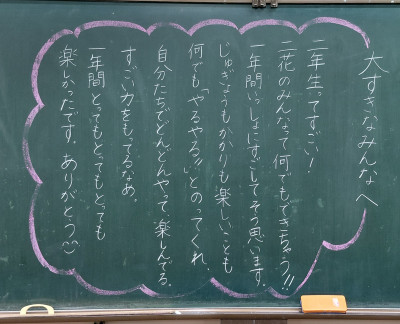 大すきなみんなへ
二年生ってすごい!
二花のみんなって何でもできちゃう!!
一年間いっしょにすごしてそう思います。
じゅぎょうもかかりも楽しいことも
何でも「やるやる!!」とのってくれ、
自分たちでどんどんやって、楽しんでる。
すごい力をもってるなあ。
一年間とってもとってもとっても
楽しかったです。ありがとう